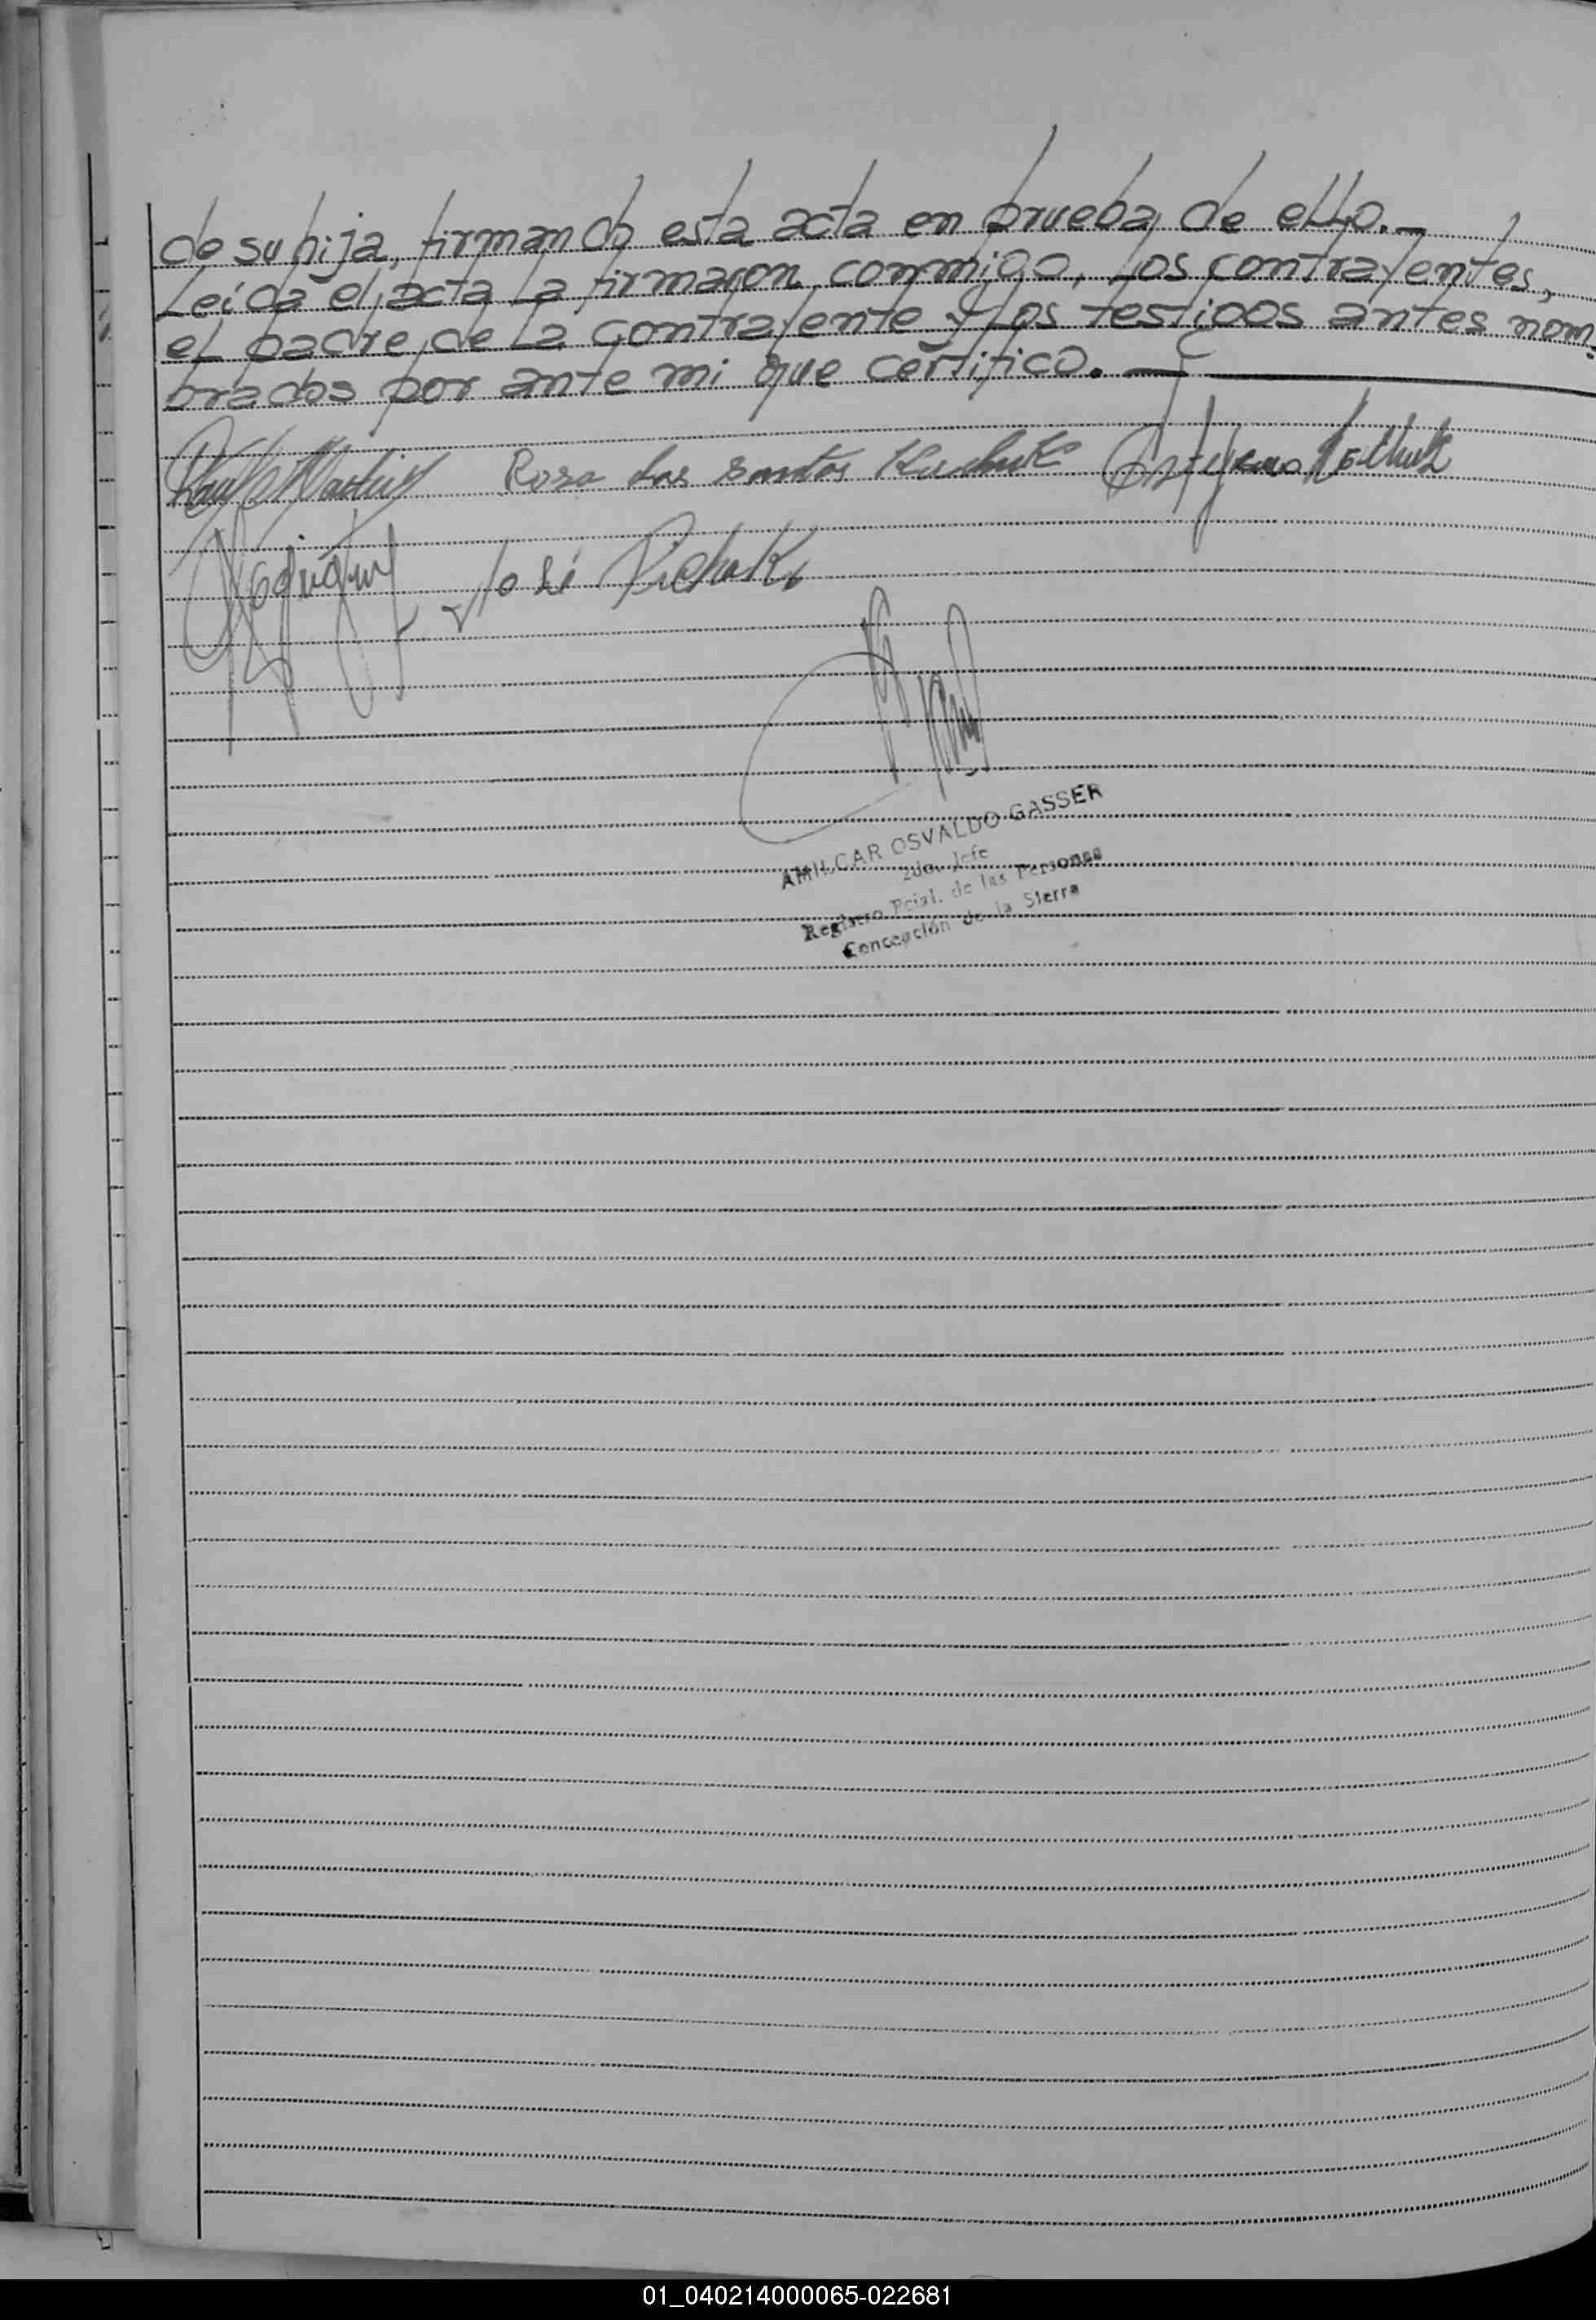 de su hija, firmando esta acta en prueba de ello.—
Leída el acta la firmaron conmigo, los contrayentes,
el padre de la contrayente y los testigos antes nom-
brados por ante mi que certifico. —
Rosa dos Santos
José
AMILCAR OSVALDO GASSER
2do. Jefe
Registro Pcial. de las Personas
Concepción de la Sierra
01_040214000065-022681